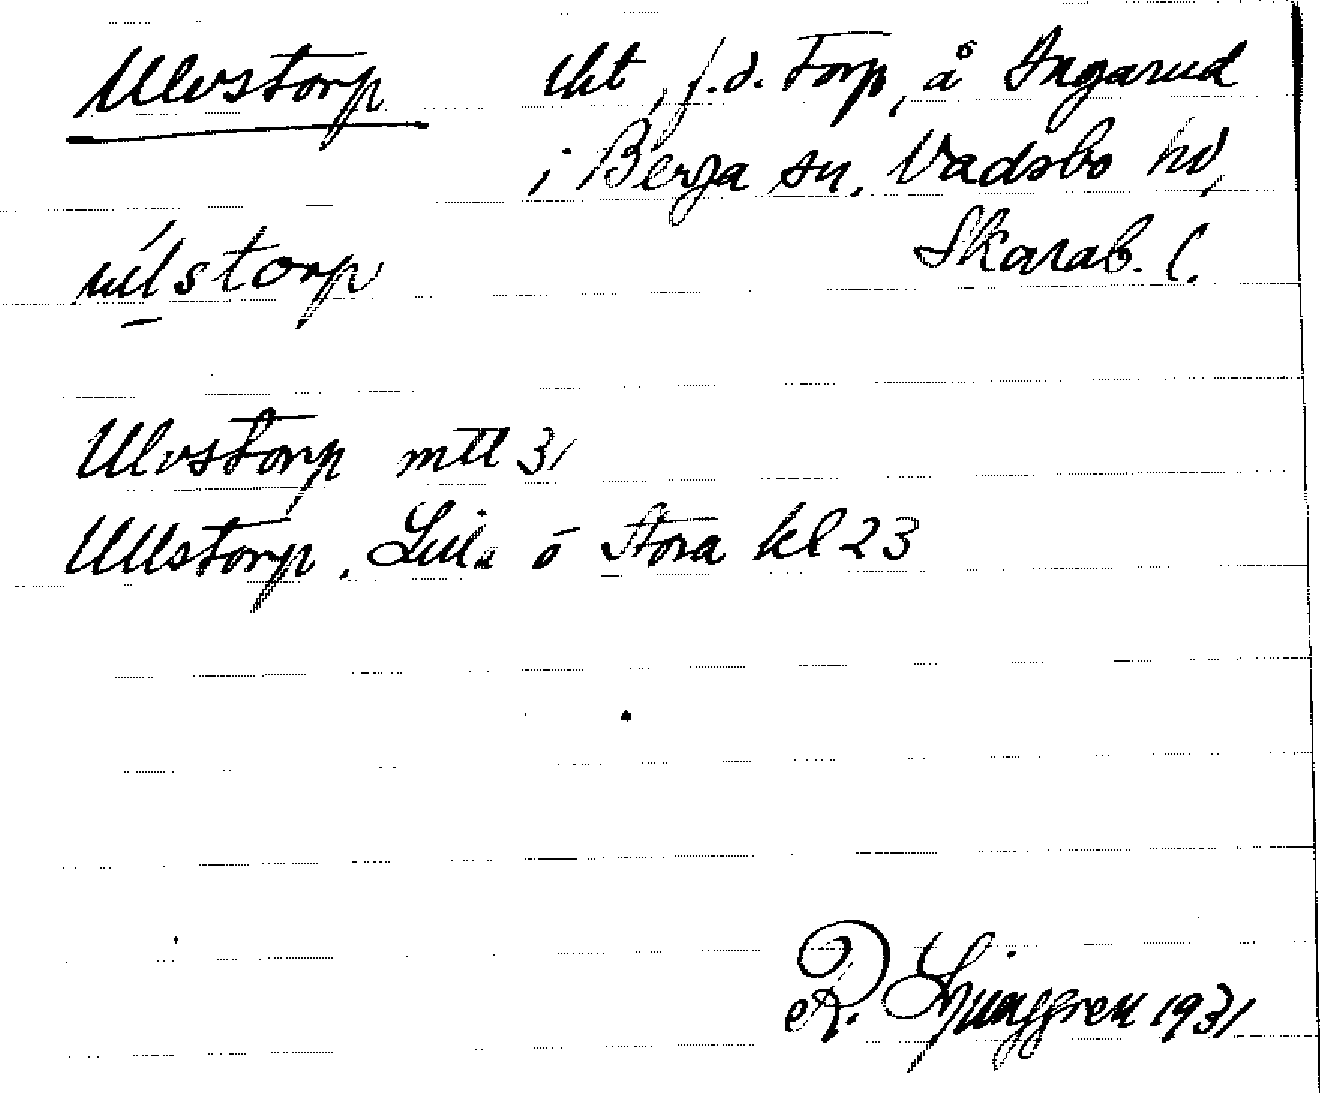 Ulvstorp lht, f.d. torp, å Ingarud
i Berga sn. Vadsbo hd,
úlstorp Skarab. l.
Ulvstorp mtl 31
Ullstorp, Lilla o Stora kl 23
R. Ljunggren 1931